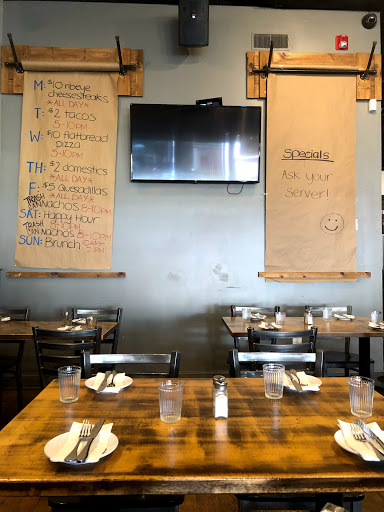 M: $10 ribeye
cheesesteaks
*ALL DAY*
T: $2 tacos
5-10PM
W: $10 flatbread
pizza
5-10PM
TH: $2 domestics
*ALL DAY*
F: $5 Quesadillas
*ALL DAY*
TRASH
CAN Nachos 8-10PM
SAT: Happy Hour
8-10PM
TRASH
CAN Nachos 8-10PM
SUN: Brunch
Specials
Ask your
Server!